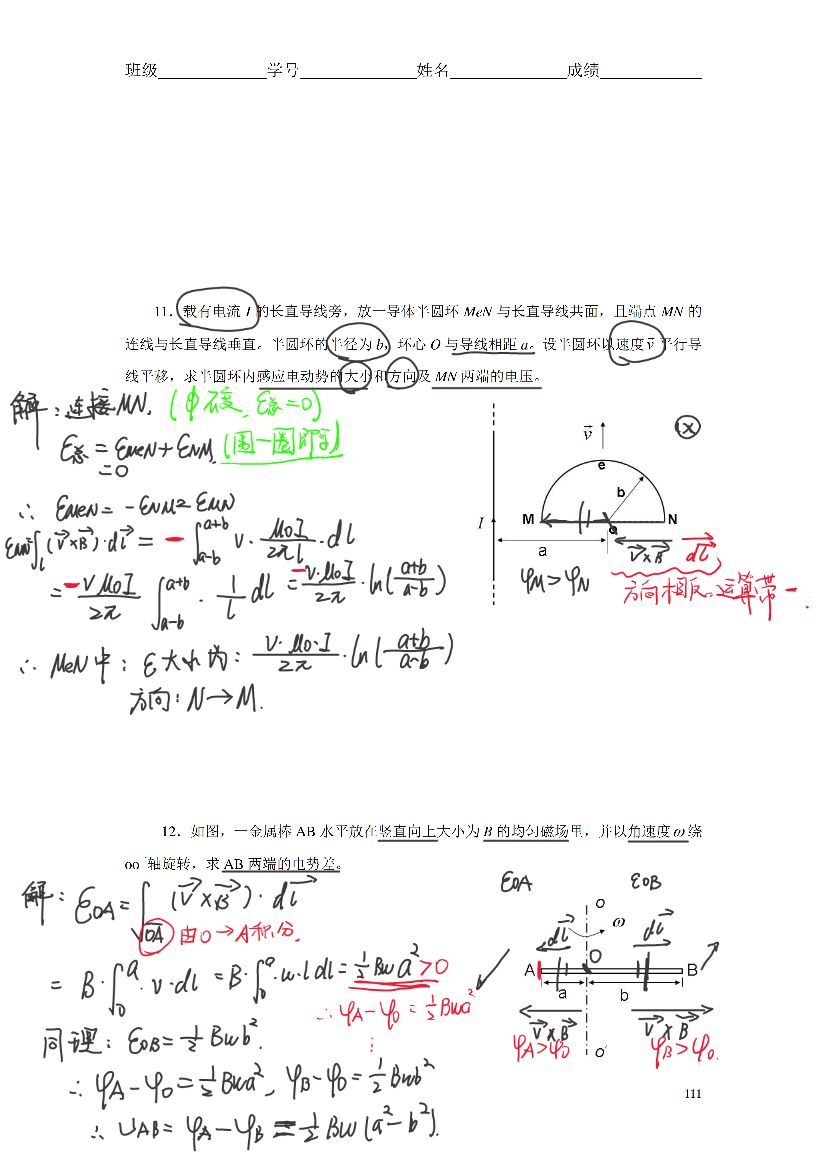 班级 学号 姓名 成绩
11. 载有电流 I 的长直导线旁，放一导体半圆环 MeN 与长直导线共面，且端点 MN 的
连线与长直导线垂直。半圆环的半径为 b，环心 O 与导线相距 a。设半圆环以速度 v⃗ 平行导
线平移，求半圆环内感应电动势的大小和方向及 MN 两端的电压。
解：连接MN. (中石度、ε总=0)
ε总 = εMeN + εNM. (围一圈即可)
=0
∴ εMeN = -εNM = εMN
εMN = ∫L (v⃗×B⃗)·dl⃗ = - ∫_{a-b}^{a+b} v · μ0I/2πl · dl
= - vμ0I/2π ∫_{a-b}^{a+b} · 1/l dl = - v·μ0I/2π · ln(a+b/a-b)
∴ MeN中：ε大小为：v·μ0·I/2π · ln(a+b/a-b)
方向：N→M.
v⃗
e
b
I
M
N
a
v⃗×B⃗
dl⃗
φM>φN
方向相反。运算带 - .
12. 如图，一金属棒 AB 水平放在竖直向上大小为 B 的均匀磁场里，并以角速度 ω 绕
oo′轴旋转，求 AB 两端的电势差。
解：εOA = ∫OA (v⃗×B⃗)·dl⃗
由O→A积分.
= B·∫_0^a v·dl = B·∫_0^a ω·l dl = 1/2 Bωa² >0
∴ φA-φO = 1/2 Bωa²
同理：εOB = 1/2 Bωb².
∴ φA-φO = 1/2 Bωa², φB-φO = 1/2 Bωb²
∴ UAB = φA-φB = 1/2 Bω(a²-b²).
εOA
εOB
O
ω
dl⃗
dl⃗
O
A
B
a
b
v⃗×B⃗
v⃗×B⃗
φA>φO
φB>φO.
O′
111